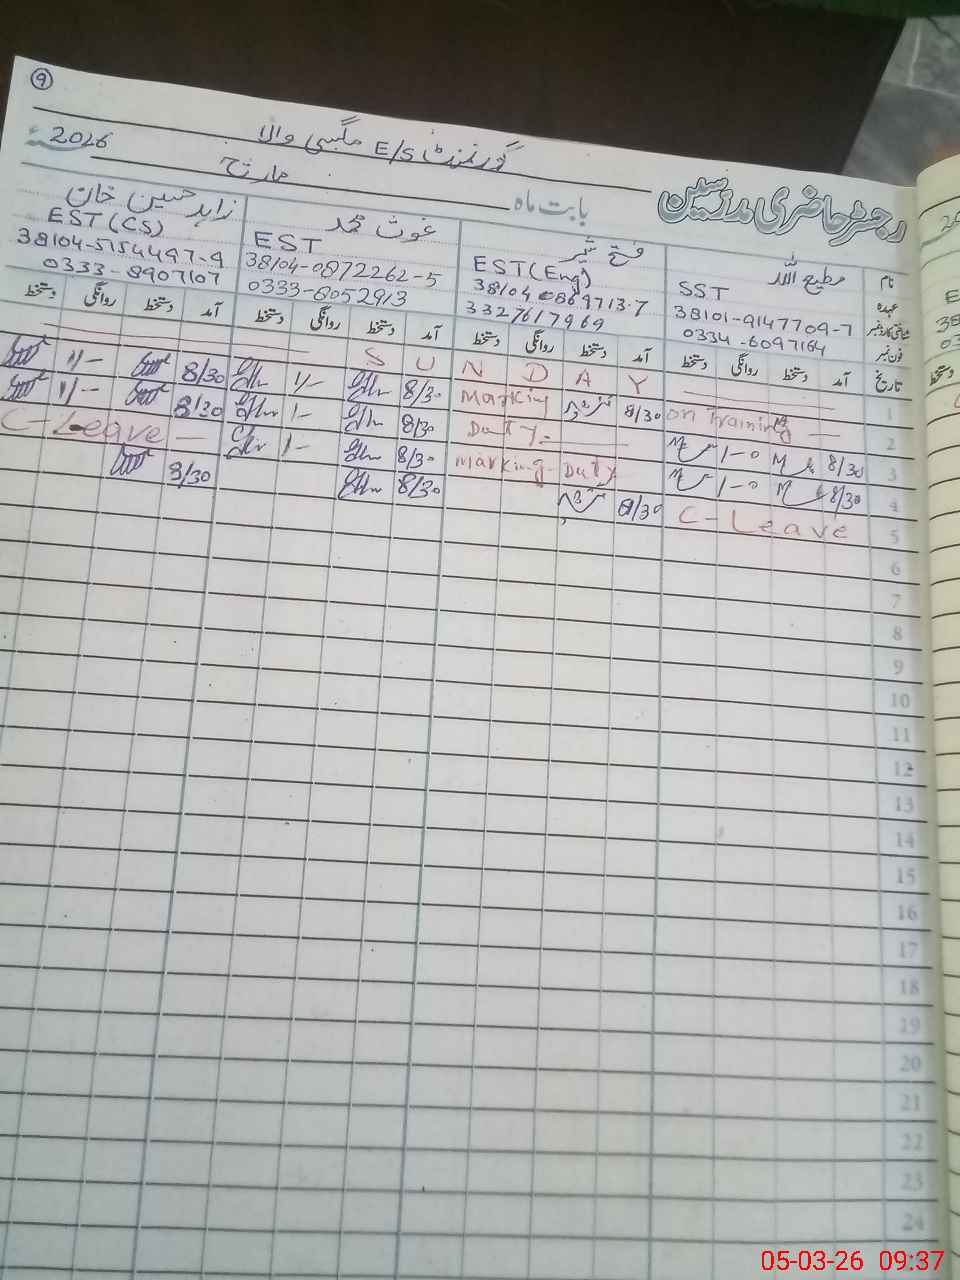 9
گورنمنٹ E/S مگسی والا
رجسٹر حاضری مدرسین
بابت ماہ مارچ 2026ء
نام مطیع اللہ فتح شیر غوث محمد زاہد حسین خان
عہدہ SST EST(Eng) EST EST(CS)
شناختی کارڈ نمبر 38101-9147709-7 38104-0869713-7 38104-0872262-5 38104-5154497-9
فون نمبر 0334-6097164 3327617969 0333-6052913 0333-8907107
تاریخ آمد دستخط روانگی دستخط آمد دستخط روانگی دستخط آمد دستخط روانگی دستخط آمد دستخط روانگی دستخط
1 SUNDAY
2 on Training 8/30 Marking 8/30 1/- 8/30 1/-
3 8/30 1-0 Duty 8/30 1- 8/30 1/-
4 8/30 1-0 Marking Duty 8/30 1- C-Leave
5 C-Leave 8/30 8/30 8/30
6
7
8
9
10
11
12
13
14
15
16
17
18
19
20
21
22
23
24
05-03-26 09:37